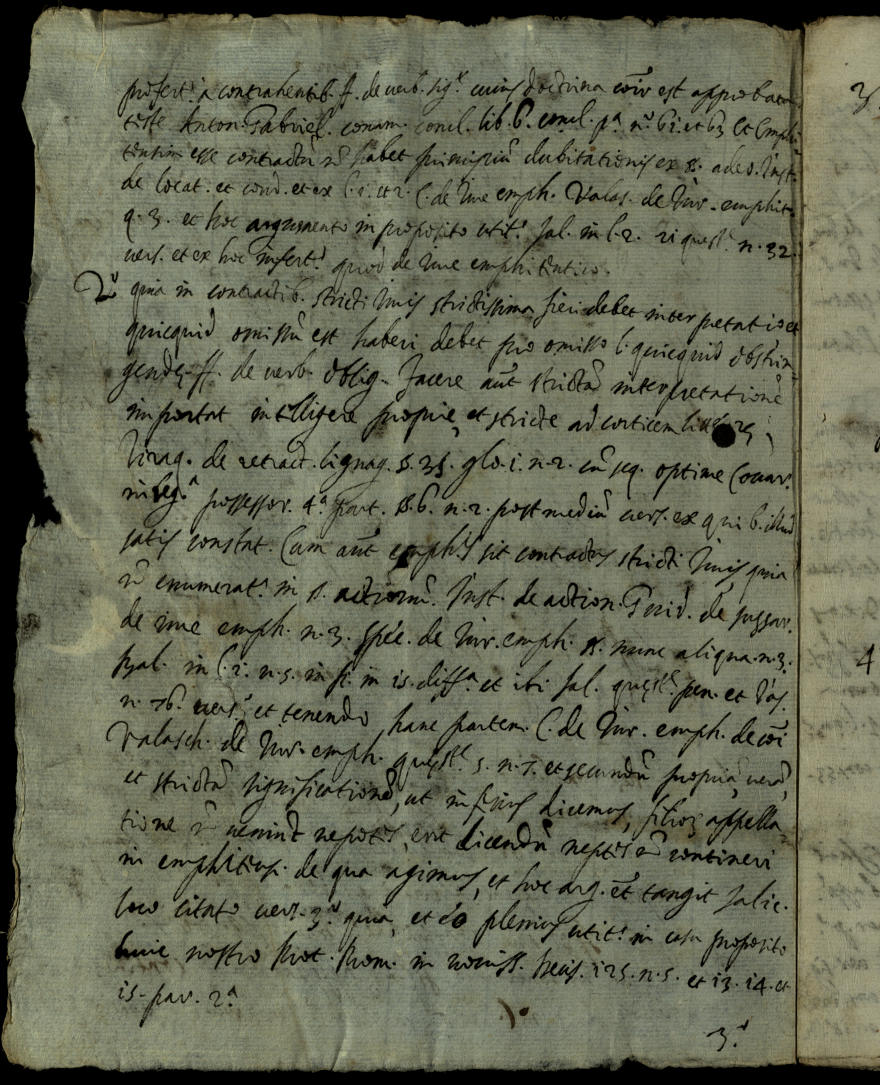 profert.r à contrahentib. ff. de verb. sig.r cuius doctrina coi͞r est approbata
teste Anton. Gabriel. comm. concl. lib. 6. concl. p.a n.o 61. et 63 et Emphi
teusim esse contractũ nõ habet principiũ dubitationis ex §. adeo. Inst.
de locat. et cond. et ex l. 1. et 2. C. de Iure emph. Valas. de Iur. emphit.
q. 3. et hoc argumento in proposito utit.r Sal. in l. 2. 21 quest.e n. 32.
vers. et ex hoc infert.r quod de iure emphiteutico.
2.o quia in contractib. stricti Iuris strictissima fieri debet interpretatio et
quicquid omissũ est haberi debet pro omisso l. quicquid obstrin
gendę ff. de verb. oblig. facere aũt strictã interpretationẽ
importat intelligere proprie, et stricte ad corticem
Tiraq. de retract. lignag. §. 35. glo. 1. n. 2. cũ seq. optime Covar.
in reg.a possessor. 4.a part. §. 6. n. 2. post mediũ vers. ex quib. illud
satis constat. Cum aũt emph.is sit contractus stricti Iuris quia
nõ enumerat.r in §. actionũ. Inst. de action. Guid. de suzzar.
de iure emph. n. 3. Spec. de Iur. emph. §. nunc aliqua. n. 3.
Bal. in l. 1. n. 5. in fi. in 15. diff.a et ibi Sal. quęst.e pen. et Ias.
n. 76. vers.o et tenendo hanc partem. C. de Iur. emph. de coi͞
Valasch. de Iur. emph. quęst.e 5. n. 7. et secundũ propriã, verã,
et strictã significationẽ, ut inferius dicemus, filior appella
tione nõ veniunt nepotes, erit dicendũ neptes nõ contineri
in emphiteusi de qua agimus, et hoc arg. et͞ tangit Salic.
loco citato vers. 3.o quia, et eo plenius utit.r in casu proposito
huic nostro Rot. Rom. in noviss. decis. 125. n. 5. et 13. 14. et
15. par. 2.a
3.o